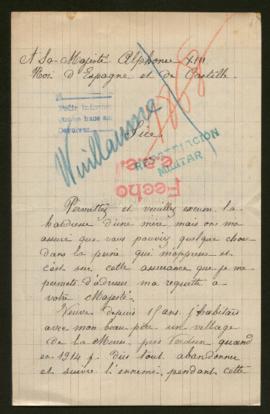 A Sa Majesté Alphonse XIII
Roi d'Espagne et de Castille
Sire
Wuillaume
RESTRICCIÓN
MILITAR
Fecho
Permettez et veuillez excuser la
hardiesse d'une mère mais on m'a
assuré que vous pouviez quelque chose
dans la peine que m'oppresse et
c'est sur cette assurance que je me
permets d'adresser ma requette à
votre Majesté.
Veuve depuis 15 ans j'habitais
avec mon beau père un village
de la Meuse près Verdun quand
en 1914 je dus tout abandonner
et suivre l'ennemi, pendant cette